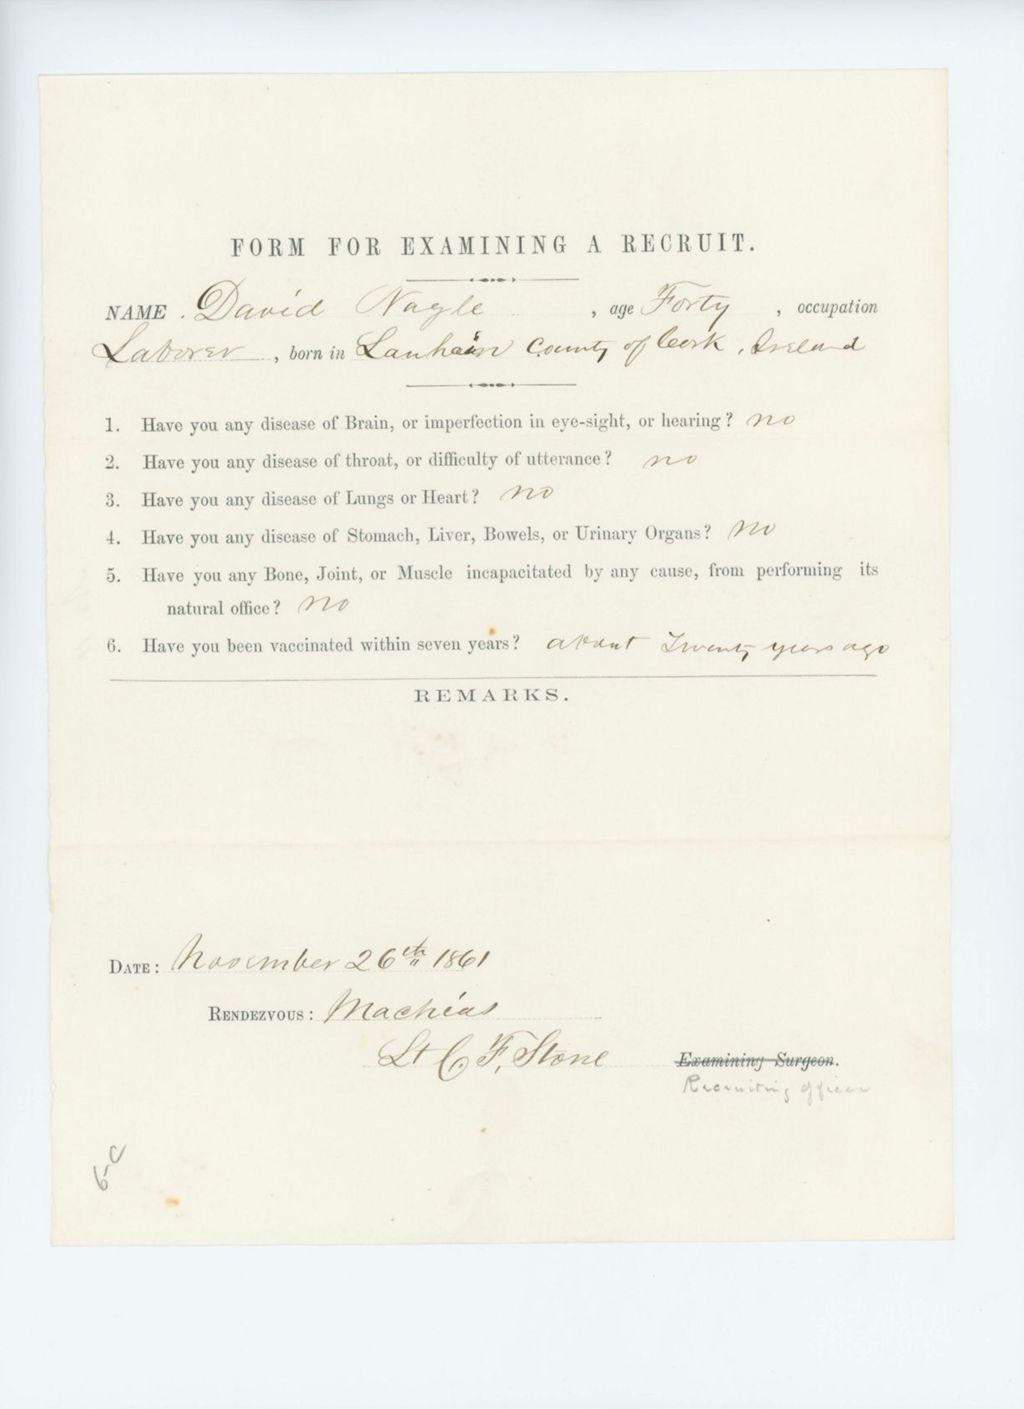 FORM FOR EXAMINING A RECRUIT.
NAME. David Nagle, age Forty, occupation
Laborer, born in County of Cork, Ireland
1. Have you any disease of Brain, or imperfection in eye-sight, or hearing? no
2. Have you any disease of throat, or difficulty of utterance? no
3. Have you any disease of Lungs or Heart? no
4. Have you any disease of Stomach, Liver, Bowels, or Urinary Organs? no
5. Have you any Bone, Joint, or Muscle incapacitated by any cause, from performing its
natural office? no
6. Have you been vaccinated within seven years? about Twenty years ago
REMARKS.
DATE: November 26th 1861
RENDEZVOUS: Machias
Lt C. F. Stone Examining Surgeon.
Recruiting officer